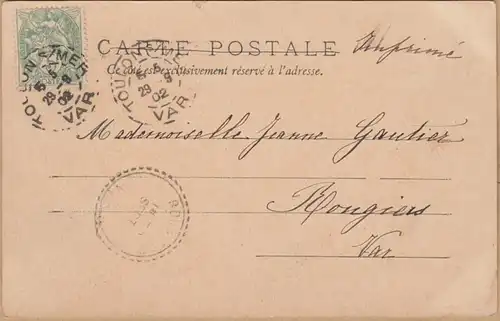 CARTE POSTALE
Imprimé
Ce côté est exclusivement réservé à l'adresse.
TOULON S/ MER
VAR
TOULON S/ MER
VAR
Mademoiselle Jeanne Gautier
Rougiers
Var